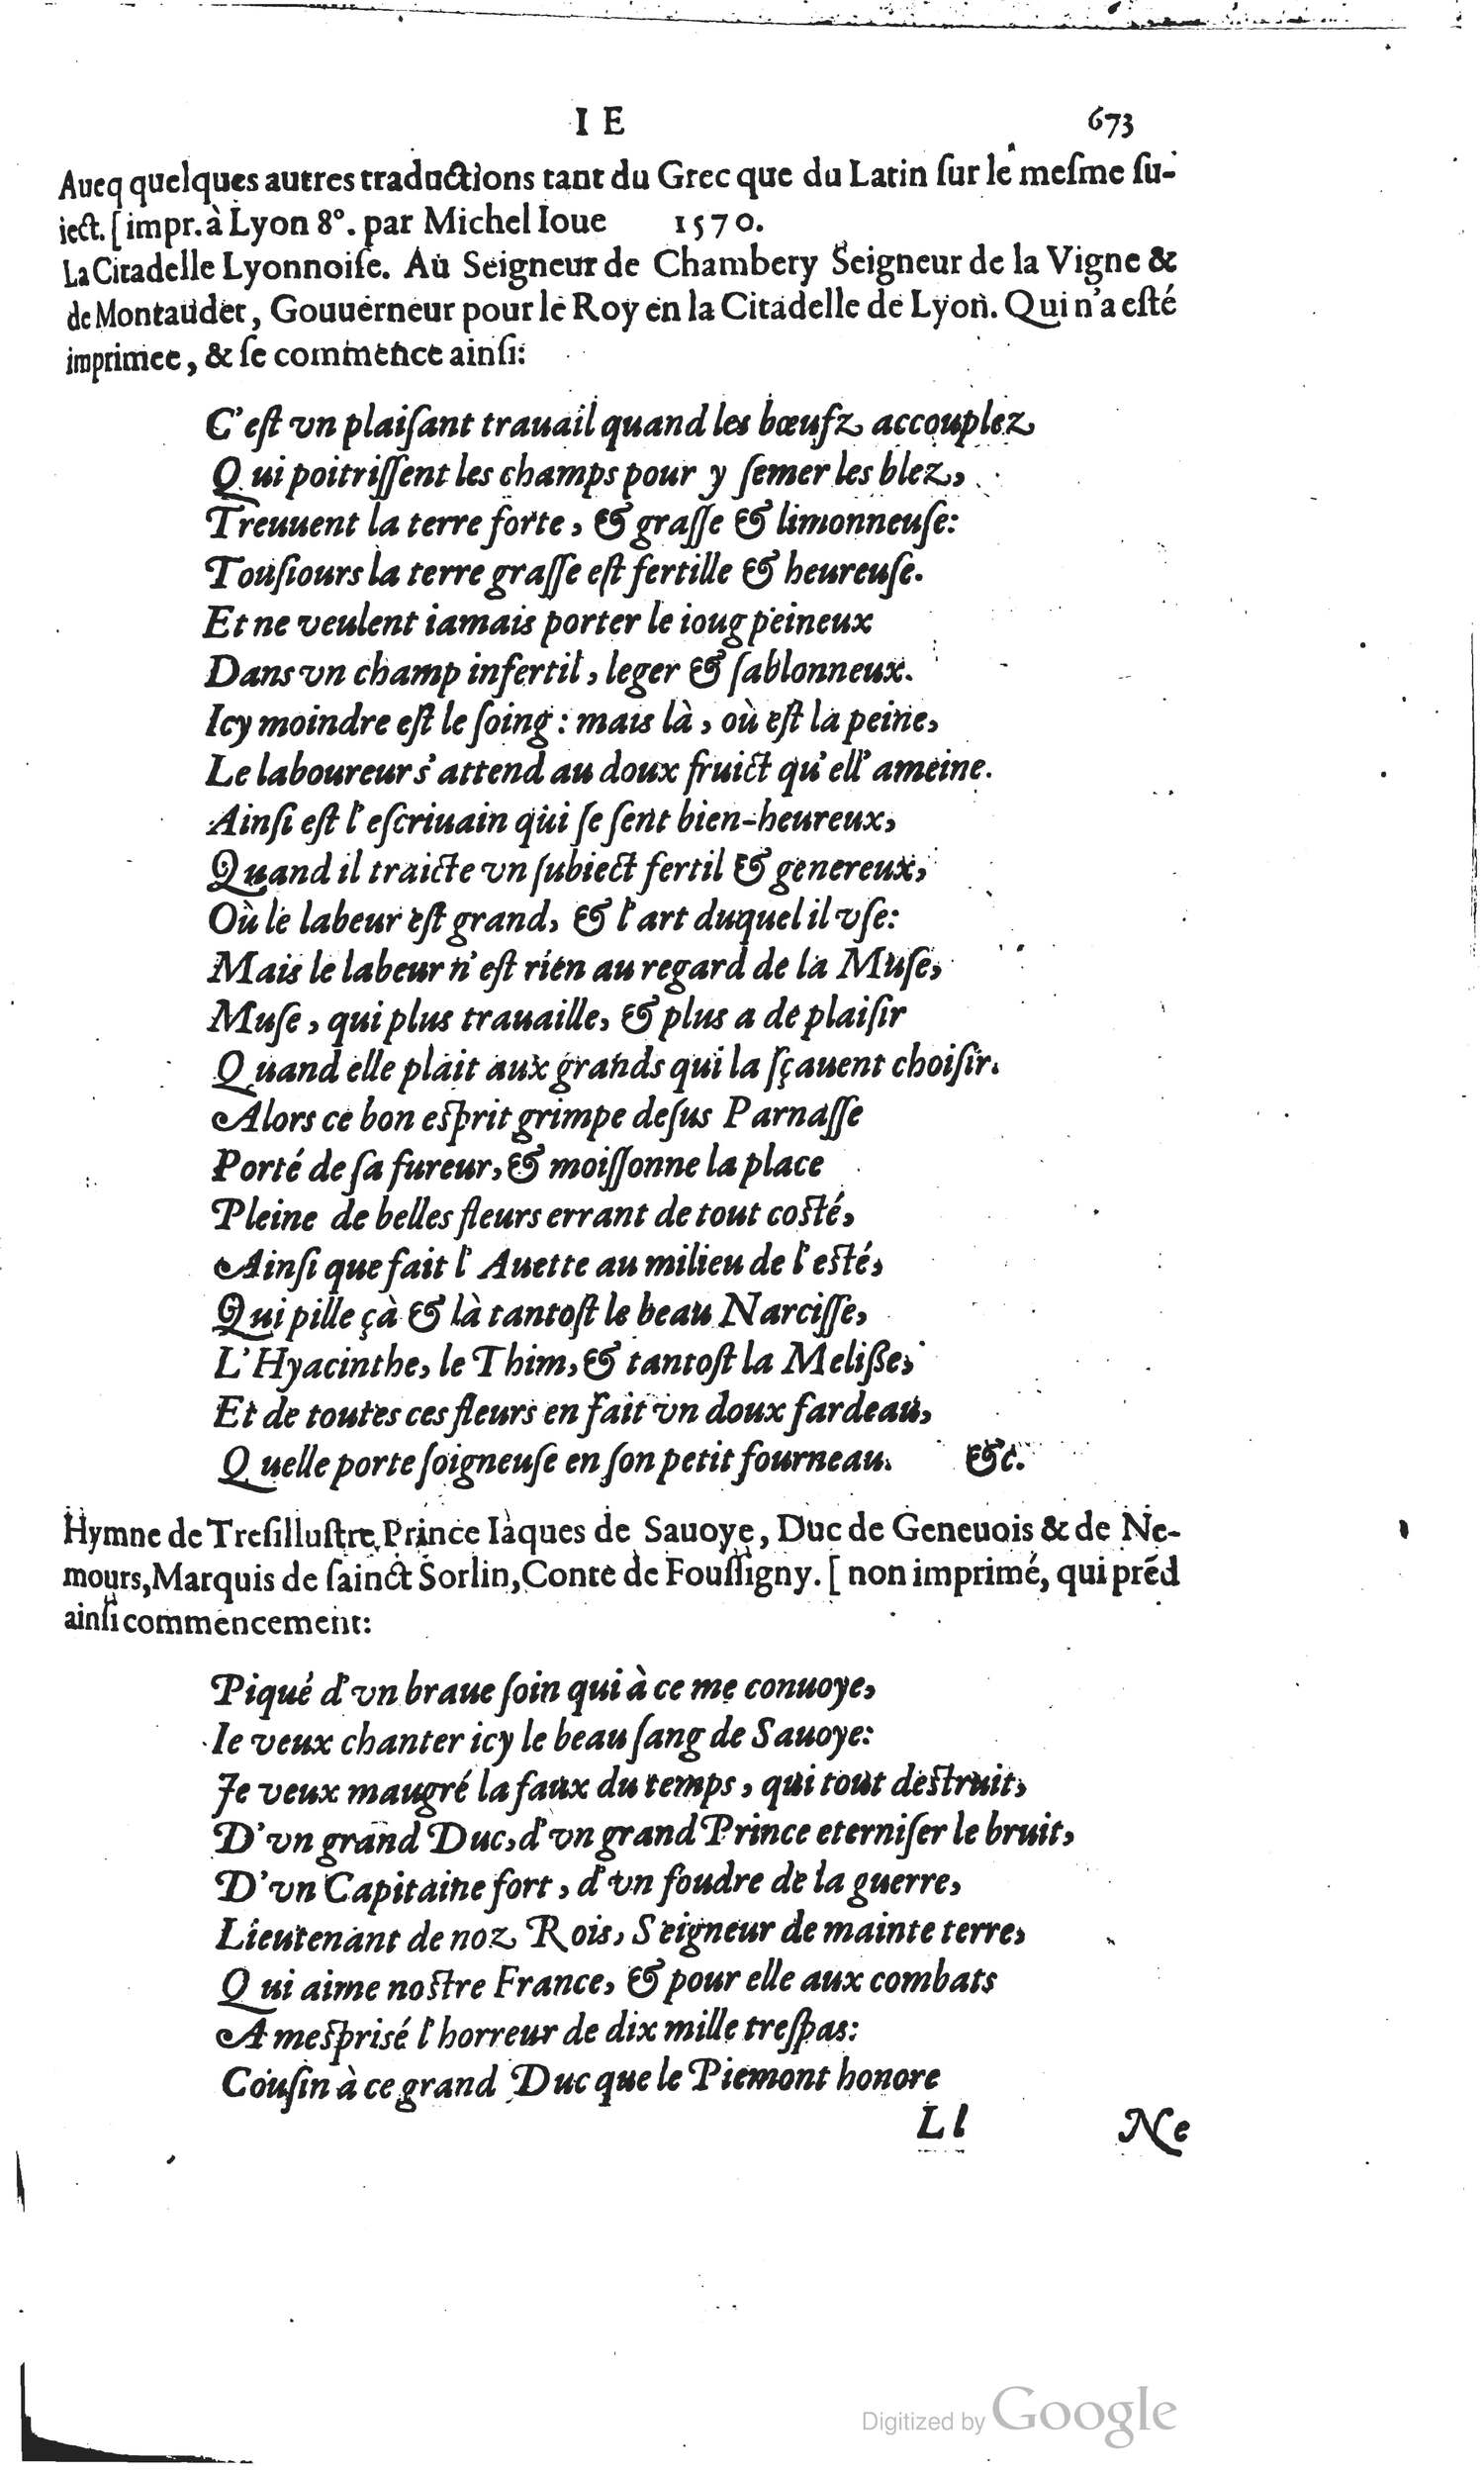 I E 673
Auecq quelques autres traductions tant du Grec que du Latin ſur le meſme ſu-
iect. [impr. à Lyon 8°. par Michel Ioue 1570.
La Citadelle Lyonnoiſe. Au Seigneur de Chambery Seigneur de la Vigne &
de Montaudet, Gouuerneur pour le Roy en la Citadelle de Lyon. Qui n'a eſté
imprimee, & ſe commence ainſi:
C'eſt vn plaiſant trauail quand les bœufz accouplez
Qui poitriſſent les champs pour y ſemer les blez,
Treuuent la terre forte, & graſſe & limonneuſe:
Touſiours la terre graſſe eſt fertille & heureuſe.
Et ne veulent iamais porter le ioug peineux
Dans vn champ infertil, leger & ſablonneux.
Icy moindre eſt le ſoing: mais là, où eſt la peine,
Le laboureur s'attend au doux fruict qu'ell' ameine.
Ainſi eſt l'eſcriuain qui ſe ſent bien-heureux,
Quand il traicte vn ſubiect fertil & genereux,
Où le labeur eſt grand, & l'art duquel il vſe:
Mais le labeur n'eſt rien au regard de la Muſe,
Muſe, qui plus trauaille, & plus a de plaiſir
Quand elle plait aux grands qui la ſçauent choiſir.
Alors ce bon eſprit grimpe deſus Parnaſſe
Porté de ſa fureur, & moiſſonne la place
Pleine de belles fleurs errant de tout coſté,
Ainſi que fait l'Auette au milieu de l'eſté,
Qui pille çà & là tantoſt le beau Narciſſe,
L'Hyacinthe, le Thim, & tantoſt la Meliſſe,
Et de toutes ces fleurs en fait vn doux fardeau,
Quelle porte ſoigneuſe en ſon petit fourneau. &c.
Hymne de Treſilluſtre Prince Iaques de Sauoye, Duc de Geneuois & de Ne-
mours, Marquis de ſainct Sorlin, Conte de Fouſſigny. [non imprimé, qui prẽd
ainſi commencement:
Piqué d'vn braue ſoin qui à ce me conuoye,
Ie veux chanter icy le beau ſang de Sauoye:
Je veux maugré la faux du temps, qui tout deſtruit,
D'vn grand Duc, d'vn grand Prince eterniſer le bruit,
D'vn Capitaine fort, d'vn foudre de la guerre,
Lieutenant de noz Rois, Seigneur de mainte terre,
Qui aime noſtre France, & pour elle aux combats
A meſpriſé l'horreur de dix mille treſpas:
Couſin à ce grand Duc que le Piemont honore
Ll Ne
Digitized by Google